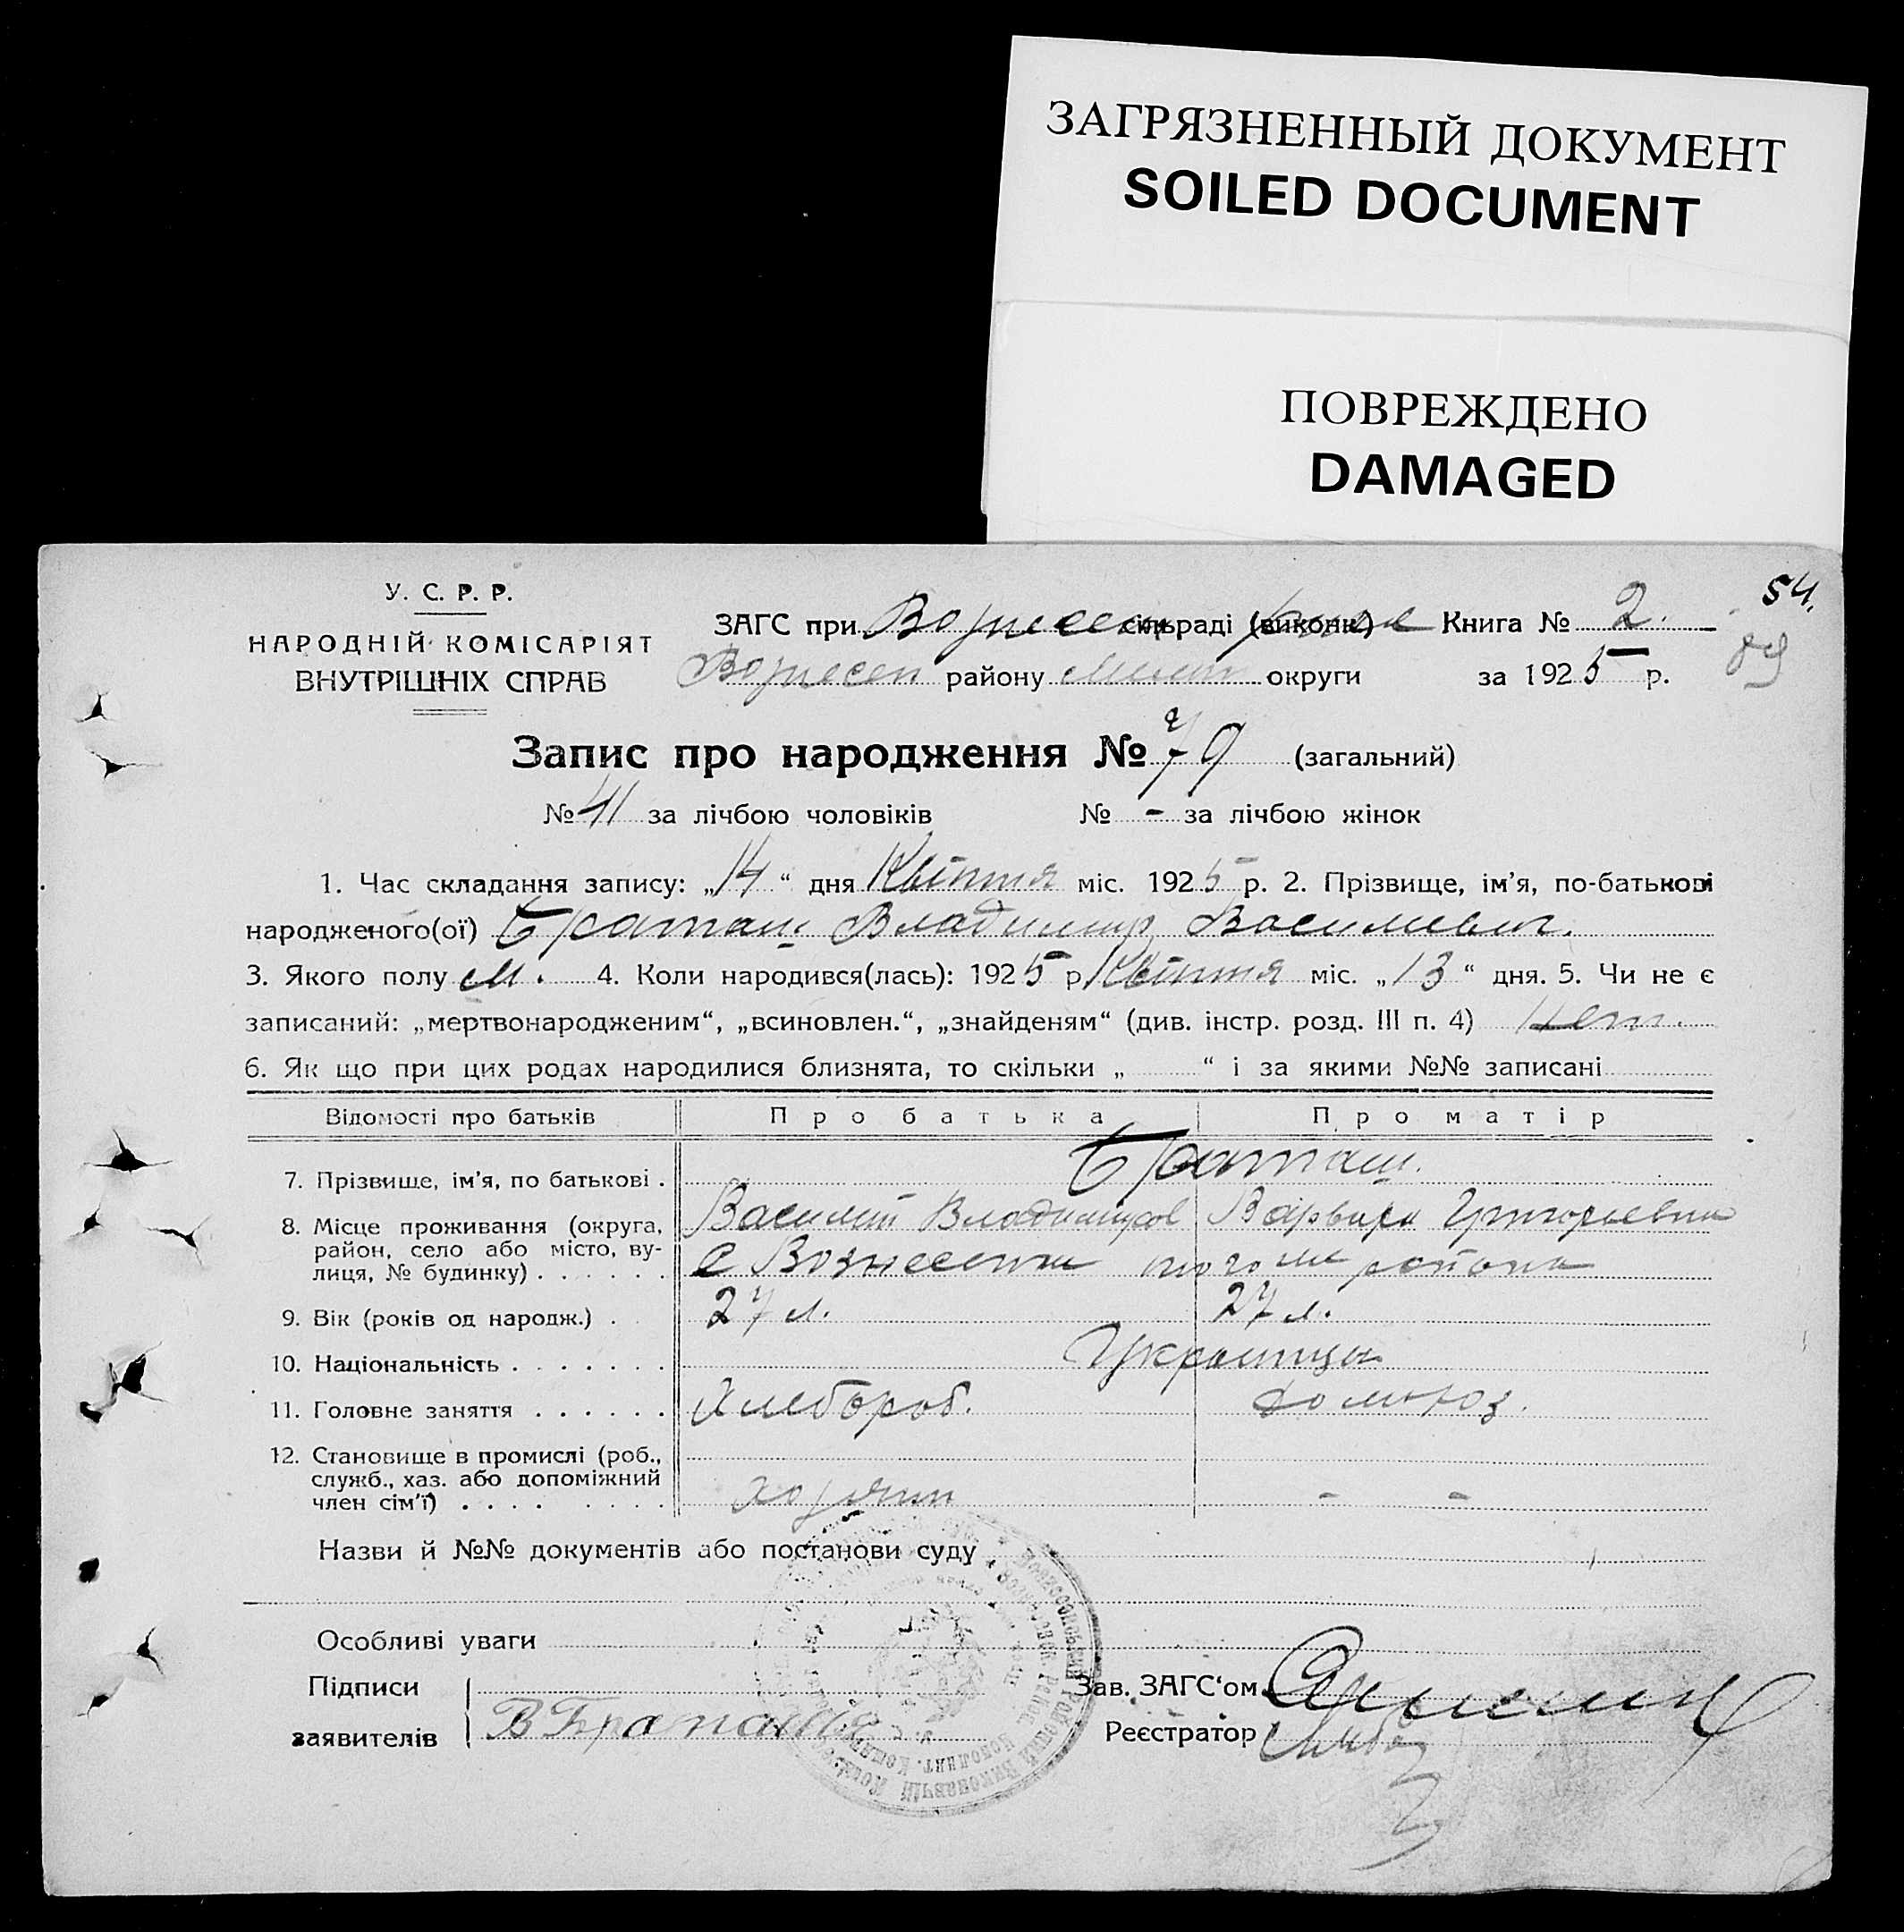 ЗАГРЯЗНЕННЫЙ ДОКУМЕНТ
SOILED DOCUMENT
ПОВРЕЖДЕНО
DAMAGED
54.
89
У. С. Р. Р.
НАРОДНІЙ КОМІСАРІЯТ
ВНУТРІШНІХ СПРАВ
ЗАГС при Вознесен сільраді (виконк.) Книга № 2.
Вознесен району Мелит округи за 1925 р.
Запис про народження № 79 (загальний)
№ 41 за лічбою чоловіків № - за лічбою жінок
1. Час складання запису: „14“ дня Квітня міс. 1925 р. 2. Прізвище, ім’я, по-батькові
народженого(ої) Браташ Владимир Васильевич.
3. Якого полу М. 4. Коли народився(лась): 1925 р. Квітня міс. „13“ дня. 5. Чи не є
записаний: „мертвонародженим“, „всиновлен.“, „знайденям“ (див. інстр. розд. III п. 4) Нет.
6. Як що при цих родах народилися близнята, то скільки „ “ і за якими №№ записані
Відомості про батьків Про батька Про матір
7. Прізвище, ім’я, по батькові . Браташ.
8. Місце проживання (округа, Василий Владимиров Варвара Григорьевна
район, село або місто, ву-
лиця, № будинку) . . . . . . с Вознесенка того же района
9. Вік (років од народж.) . 27 л. 27 л.
10. Національність . . . . . . . Украинцы
11. Головне заняття . . . . . . Хлебороб. домохоз.
12. Становище в промислі (роб.,
служб., хаз. або допоміжний
член сім’ї) . . . . . . . . хозяин - -
Назви й №№ документів або постанови суду
Особливі уваги
Підписи
заявителів В Браташ
Зав. ЗАГС‘ом
Реєстратор